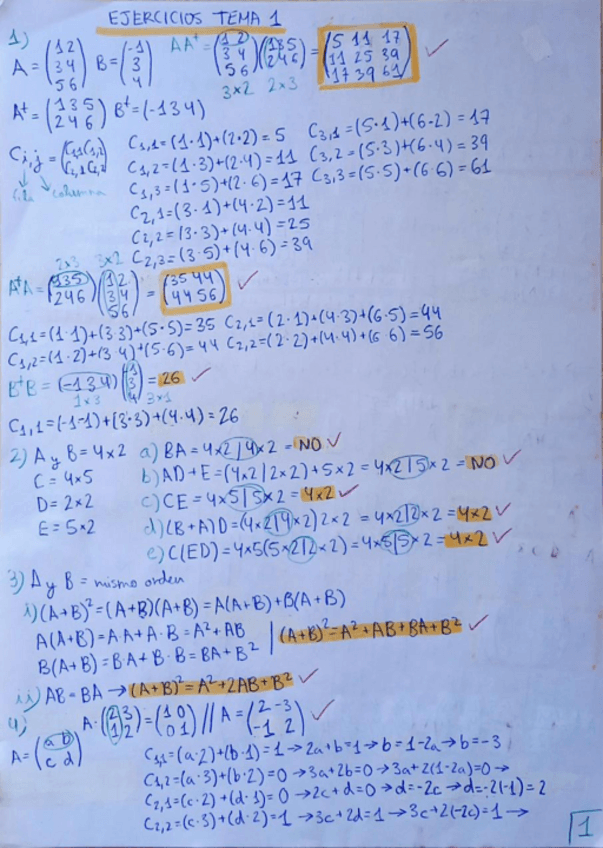 EJERCICIOS TEMA 1
1)
A = (1 2 / 3 4 / 5 6) B = (-1 / 3 / 4) AAᵗ = (1 2 / 3 4 / 5 6)(1 3 5 / 2 4 6) = (5 11 17 / 11 25 39 / 17 39 61) ✓
3x2 2x3
Aᵗ = (1 3 5 / 2 4 6) Bᵗ = (-1 3 4)
Ci,j = (C1,1 C1,2 / C2,1 C2,2)
fila columna
C1,1 = (1·1)+(2·2) = 5 C3,1 = (5·1)+(6·2) = 17
C1,2 = (1·3)+(2·4) = 11 C3,2 = (5·3)+(6·4) = 39
C1,3 = (1·5)+(2·6) = 17 C3,3 = (5·5)+(6·6) = 61
C2,1 = (3·1)+(4·2) = 11
C2,2 = (3·3)+(4·4) = 25
C2,3 = (3·5)+(4·6) = 39
2x3 3x2
AᵗA = (1 3 5 / 2 4 6)(1 2 / 3 4 / 5 6) = (35 44 / 44 56) ✓
C1,1 = (1·1)+(3·3)+(5·5) = 35 C2,1 = (2·1)+(4·3)+(6·5) = 44
C1,2 = (1·2)+(3·4)+(5·6) = 44 C2,2 = (2·2)+(4·4)+(6·6) = 56
BᵗB = (-1 3 4)(-1 / 3 / 4) = 26 ✓
1x3 3x1
C1,1 = (-1·-1)+(3·3)+(4·4) = 26
2) A y B = 4x2 a) BA = 4x2|4x2 = NO ✓
C = 4x5 b) AD+E = (4x2|2x2)+5x2 = 4x2|5x2 = NO ✓
D = 2x2 c) CE = 4x5|5x2 = 4x2 ✓
E = 5x2 d) (B+A)D = (4x2|4x2)2x2 = 4x2|2x2 = 4x2 ✓
e) C(ED) = 4x5(5x2|2x2) = 4x5|5x2 = 4x2 ✓
3) A y B = mismo orden
i) (A+B)² = (A+B)(A+B) = A(A+B)+B(A+B)
A(A+B) = A·A+A·B = A²+AB | (A+B)² = A²+AB+BA+B² ✓
B(A+B) = B·A+B·B = BA+B²
ii) AB = BA → (A+B)² = A²+2AB+B² ✓
4) A·(2 3 / 1 2) = (1 0 / 0 1) // A = (2 -3 / -1 2) ✓
A = (a b / c d)
C1,1 = (a·2)+(b·1) = 1 → 2a+b=1 → b=1-2a → b=-3
C1,2 = (a·3)+(b·2) = 0 → 3a+2b=0 → 3a+2(1-2a)=0 →
C2,1 = (c·2)+(d·1) = 0 → 2c+d=0 → d=-2c → d=-2(-1)=2
C2,2 = (c·3)+(d·2) = 1 → 3c+2d=1 → 3c+2(-2c)=1 →
1